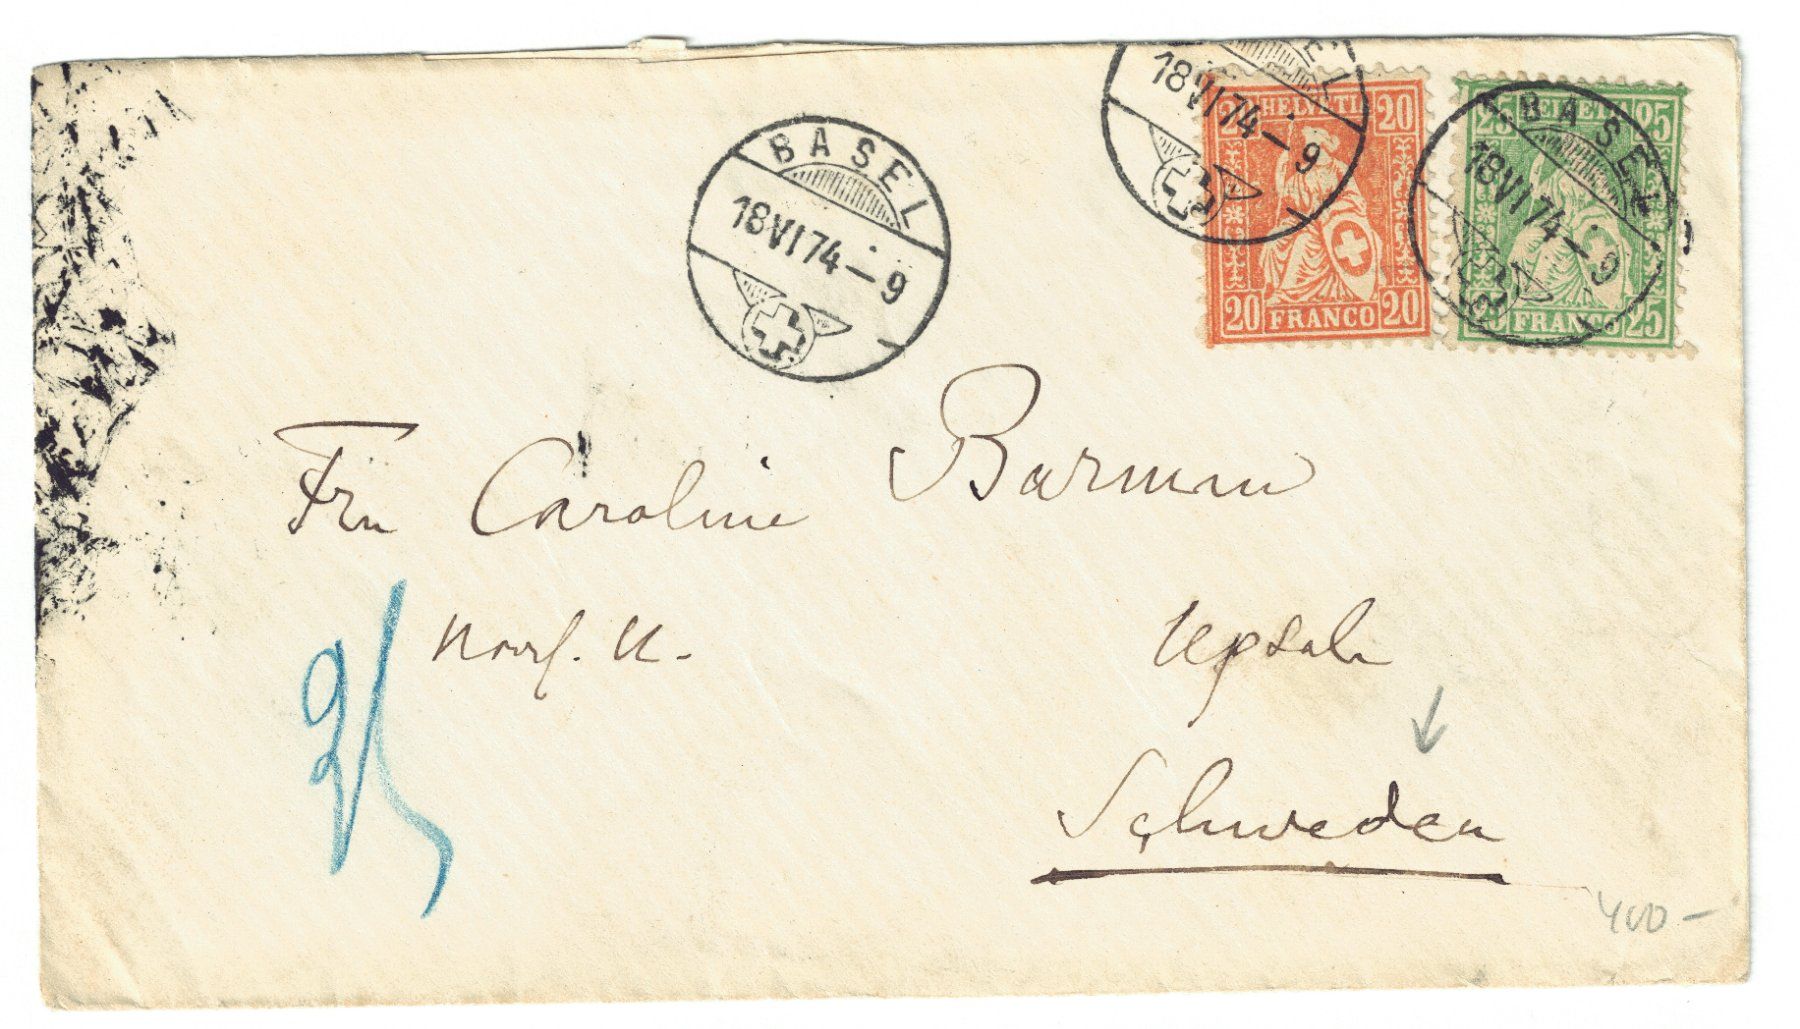 BASEL
18 VI 74 – 9
EL
18 VI 74 – 9
20 HELVETI 20
20 FRANCO 20
BASEL
18 VI 74 – 9
25 HELVETI 25
FRANCO 25
Fru Caroline
Upsala
Schweden
400 –